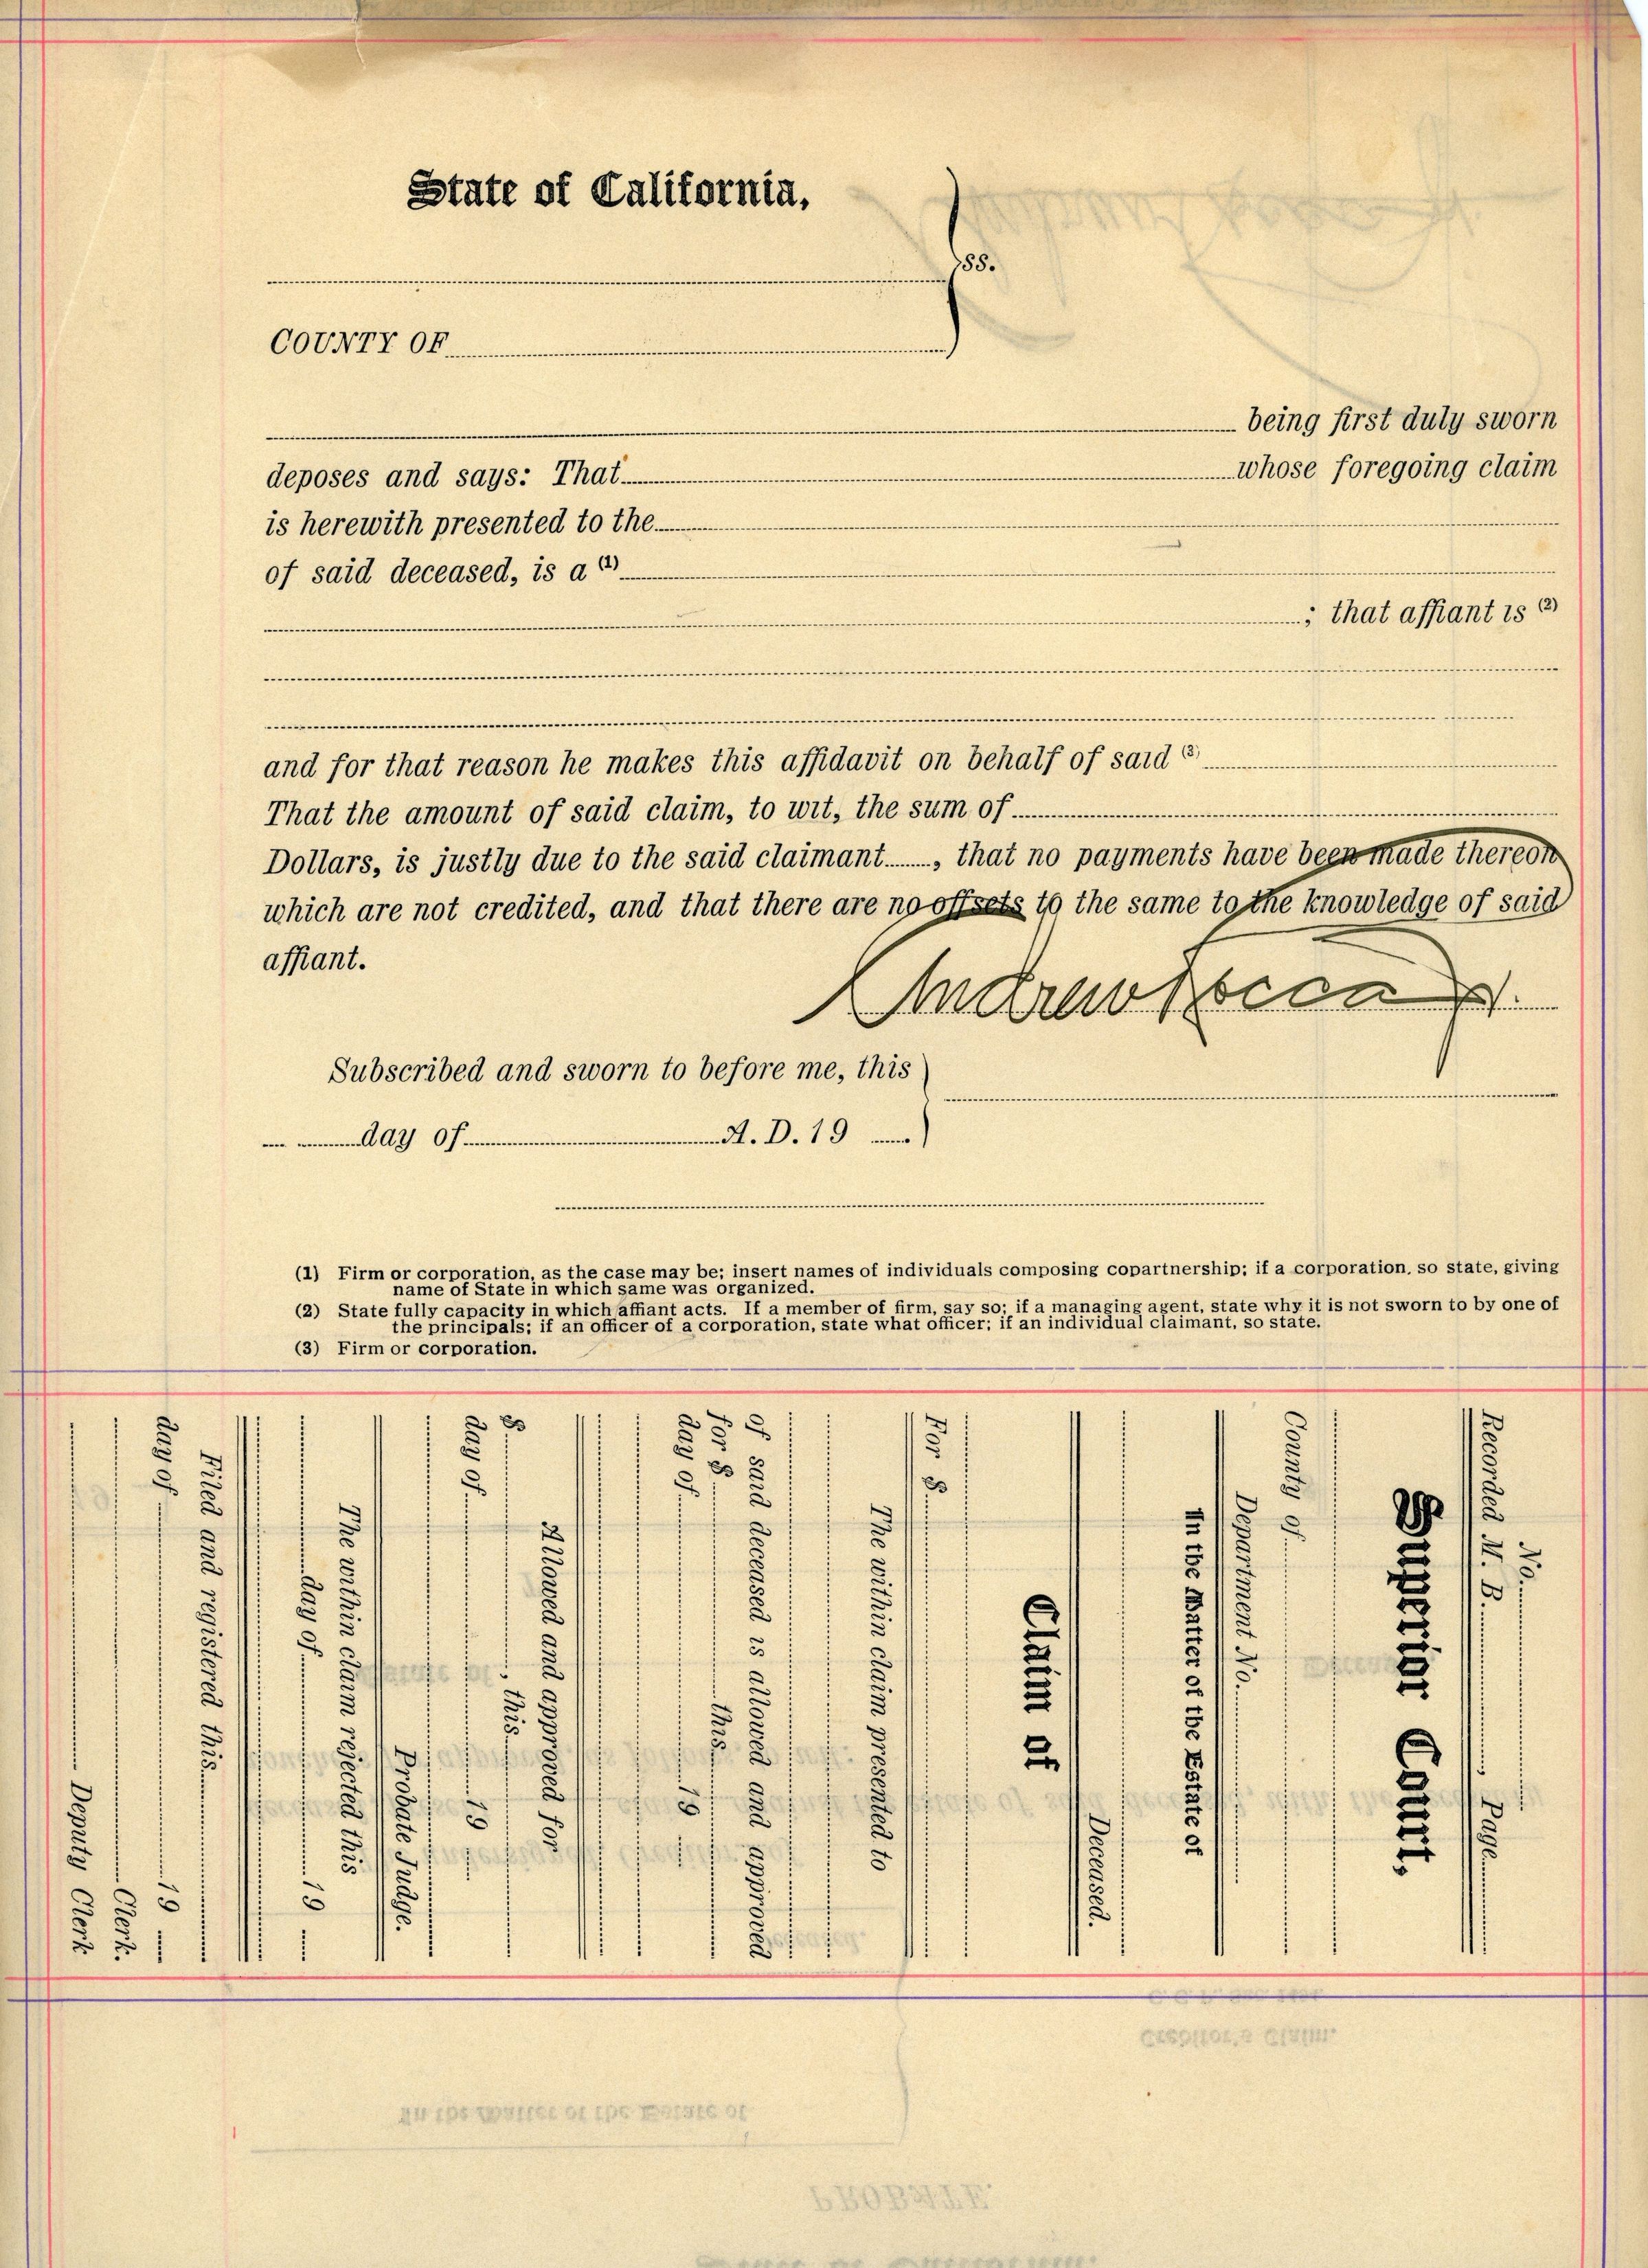 State of California,
ss.
COUNTY OF
being first duly sworn
deposes and says: That whose foregoing claim
is herewith presented to the
of said deceased, is a (1)
; that affiant is (2)
and for that reason he makes this affidavit on behalf of said (3)
That the amount of said claim, to wit, the sum of
Dollars, is justly due to the said claimant , that no payments have been made thereon
which are not credited, and that there are no offsets to the same to the knowledge of said
affiant.
Andrew Rocca Jr.
Subscribed and sworn to before me, this
day of A. D. 19
(1) Firm or corporation, as the case may be; insert names of individuals composing copartnership; if a corporation, so state, giving
name of State in which same was organized.
(2) State fully capacity in which affiant acts. If a member of firm, say so; if a managing agent, state why it is not sworn to by one of
the principals; if an officer of a corporation, state what officer; if an individual claimant, so state.
(3) Firm or corporation.
No.
Recorded M. B Page
Superior Court,
County of
Department No.
In the Matter of the Estate of
Deceased.
Claim of
For $
The within claim presented to
of said deceased is allowed and approved
For $ this
day of 19
Allowed and approved for
$ this
day of 19
Probate Judge.
The within claim rejected this
day of 19
Filed and registered this
day of 19
Clerk.
Deputy Clerk